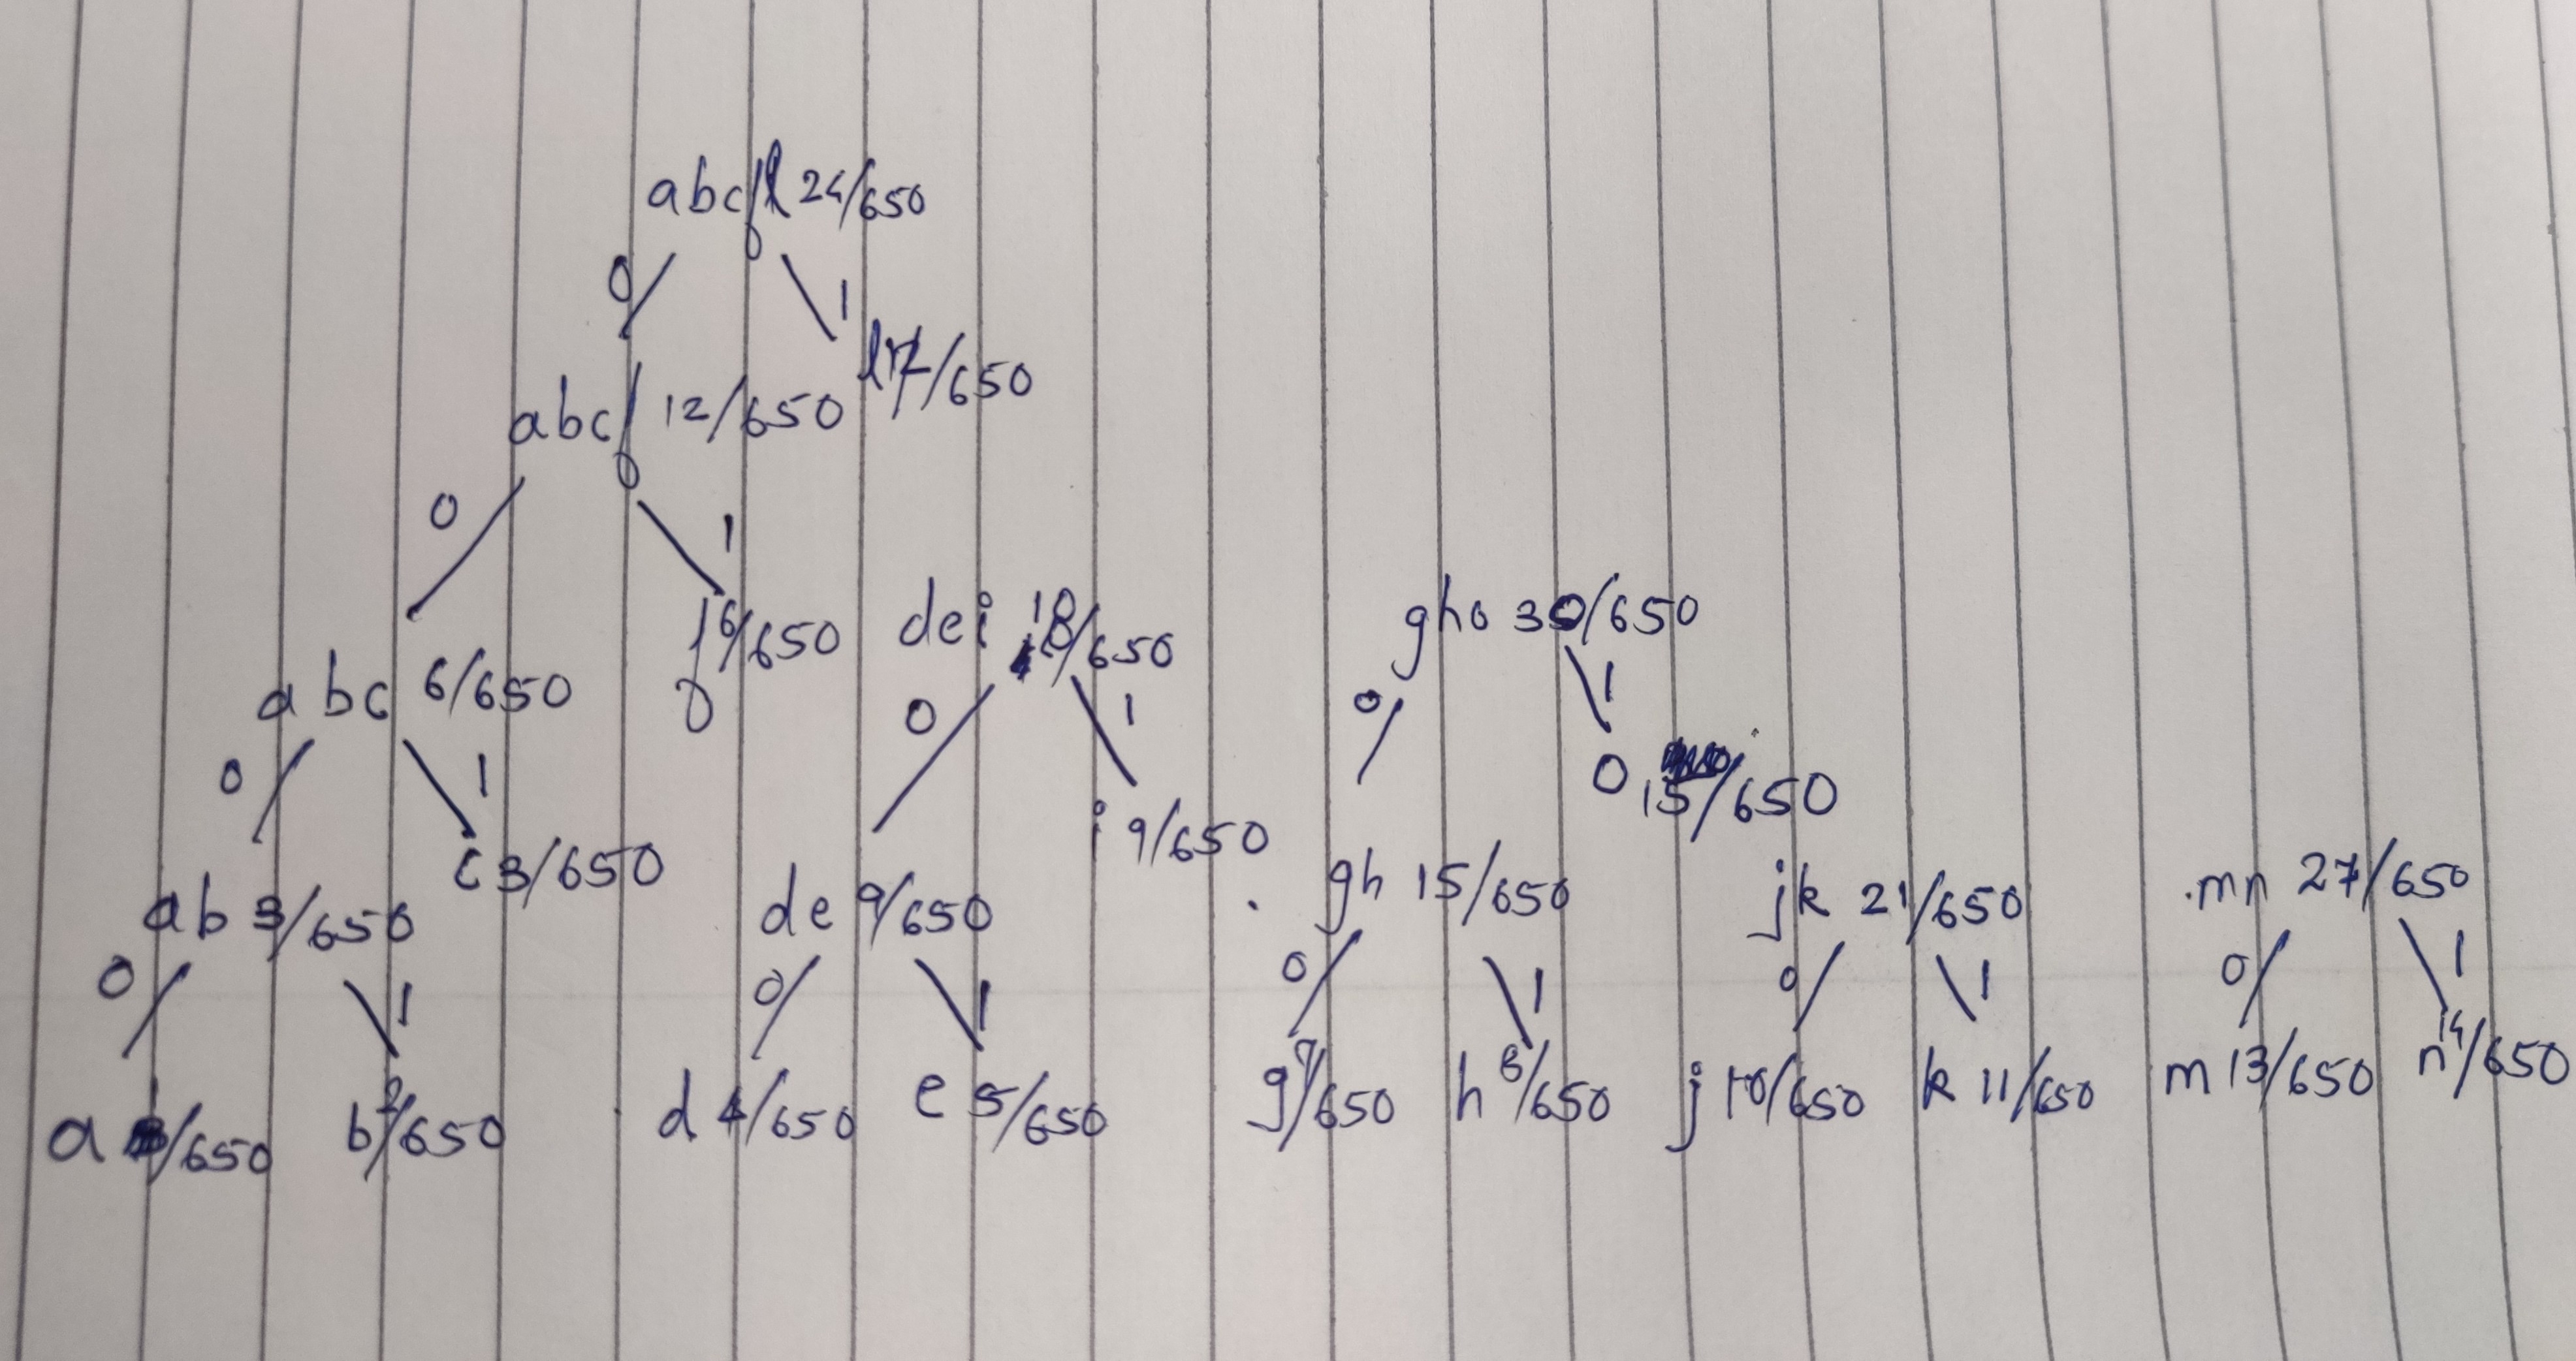 abcfl 24/650
0 1
abcf 12/650 l 17/650
0 1
abc 6/650 f 6/650 dei 18/650 gho 30/650
0 1 0 1 0 1
ab 3/650 c 3/650 de 9/650 i 9/650 gh 15/650 o 15/650 jk 21/650 mn 27/650
0 1 0 1 0 1 0 1 0 1
a /650 b 2/650 d 4/650 e 5/650 g 7/650 h 8/650 j 10/650 k 11/650 m 13/650 n 14/650